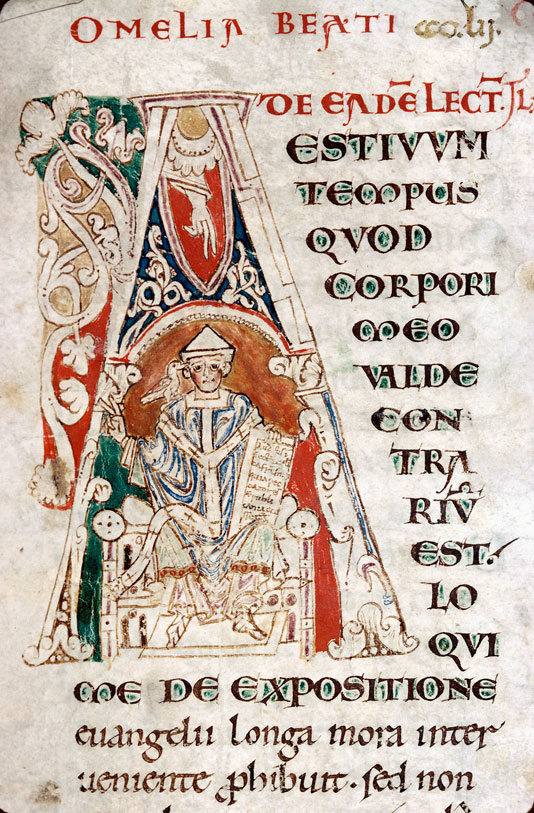 OMELIA BEATI ccc.lij.
DE EADE LECT.
AESTIVVM
TEMPUS
QVOD
CORPORI
MEO
VALDE
CON
TRA
RIV
EST.
LO
QVI
ME DE EXPOSITIONE
euangelii longa mora inter
ueniente phibuit. sed non